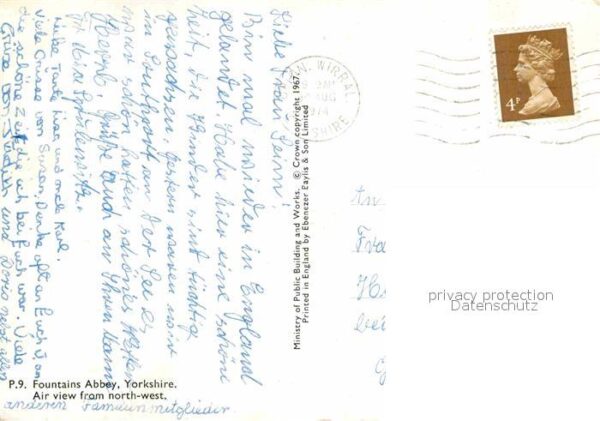 Liebe Frau
Bin mal wieder in England
gelandet. Habe hier eine schöne
Zeit, die Kinder sind tüchtig
gewachsen. Gestern waren wir
in Southport an der See es
war sehr schönes Wetter
Grüße auch an Ihren Mann
Liebe Tante Lisa und Onkel Karl.
Viele Grüsse von Susan. Denke oft an Euch und an
die schöne Zeit die ich bei Euch war. Viele
Grüsse von Judith und Doris nebst allen
anderen Familienmitglieder.
P.9. Fountains Abbey, Yorkshire.
Air view from north-west.
Ministry of Public Building and Works. © Crown copyright 1967.
Printed in England by Ebenezer Baylis & Son Limited
WIRRAL
AUG
1974
SHIRE
4P
An
privacy protection
Datenschutz